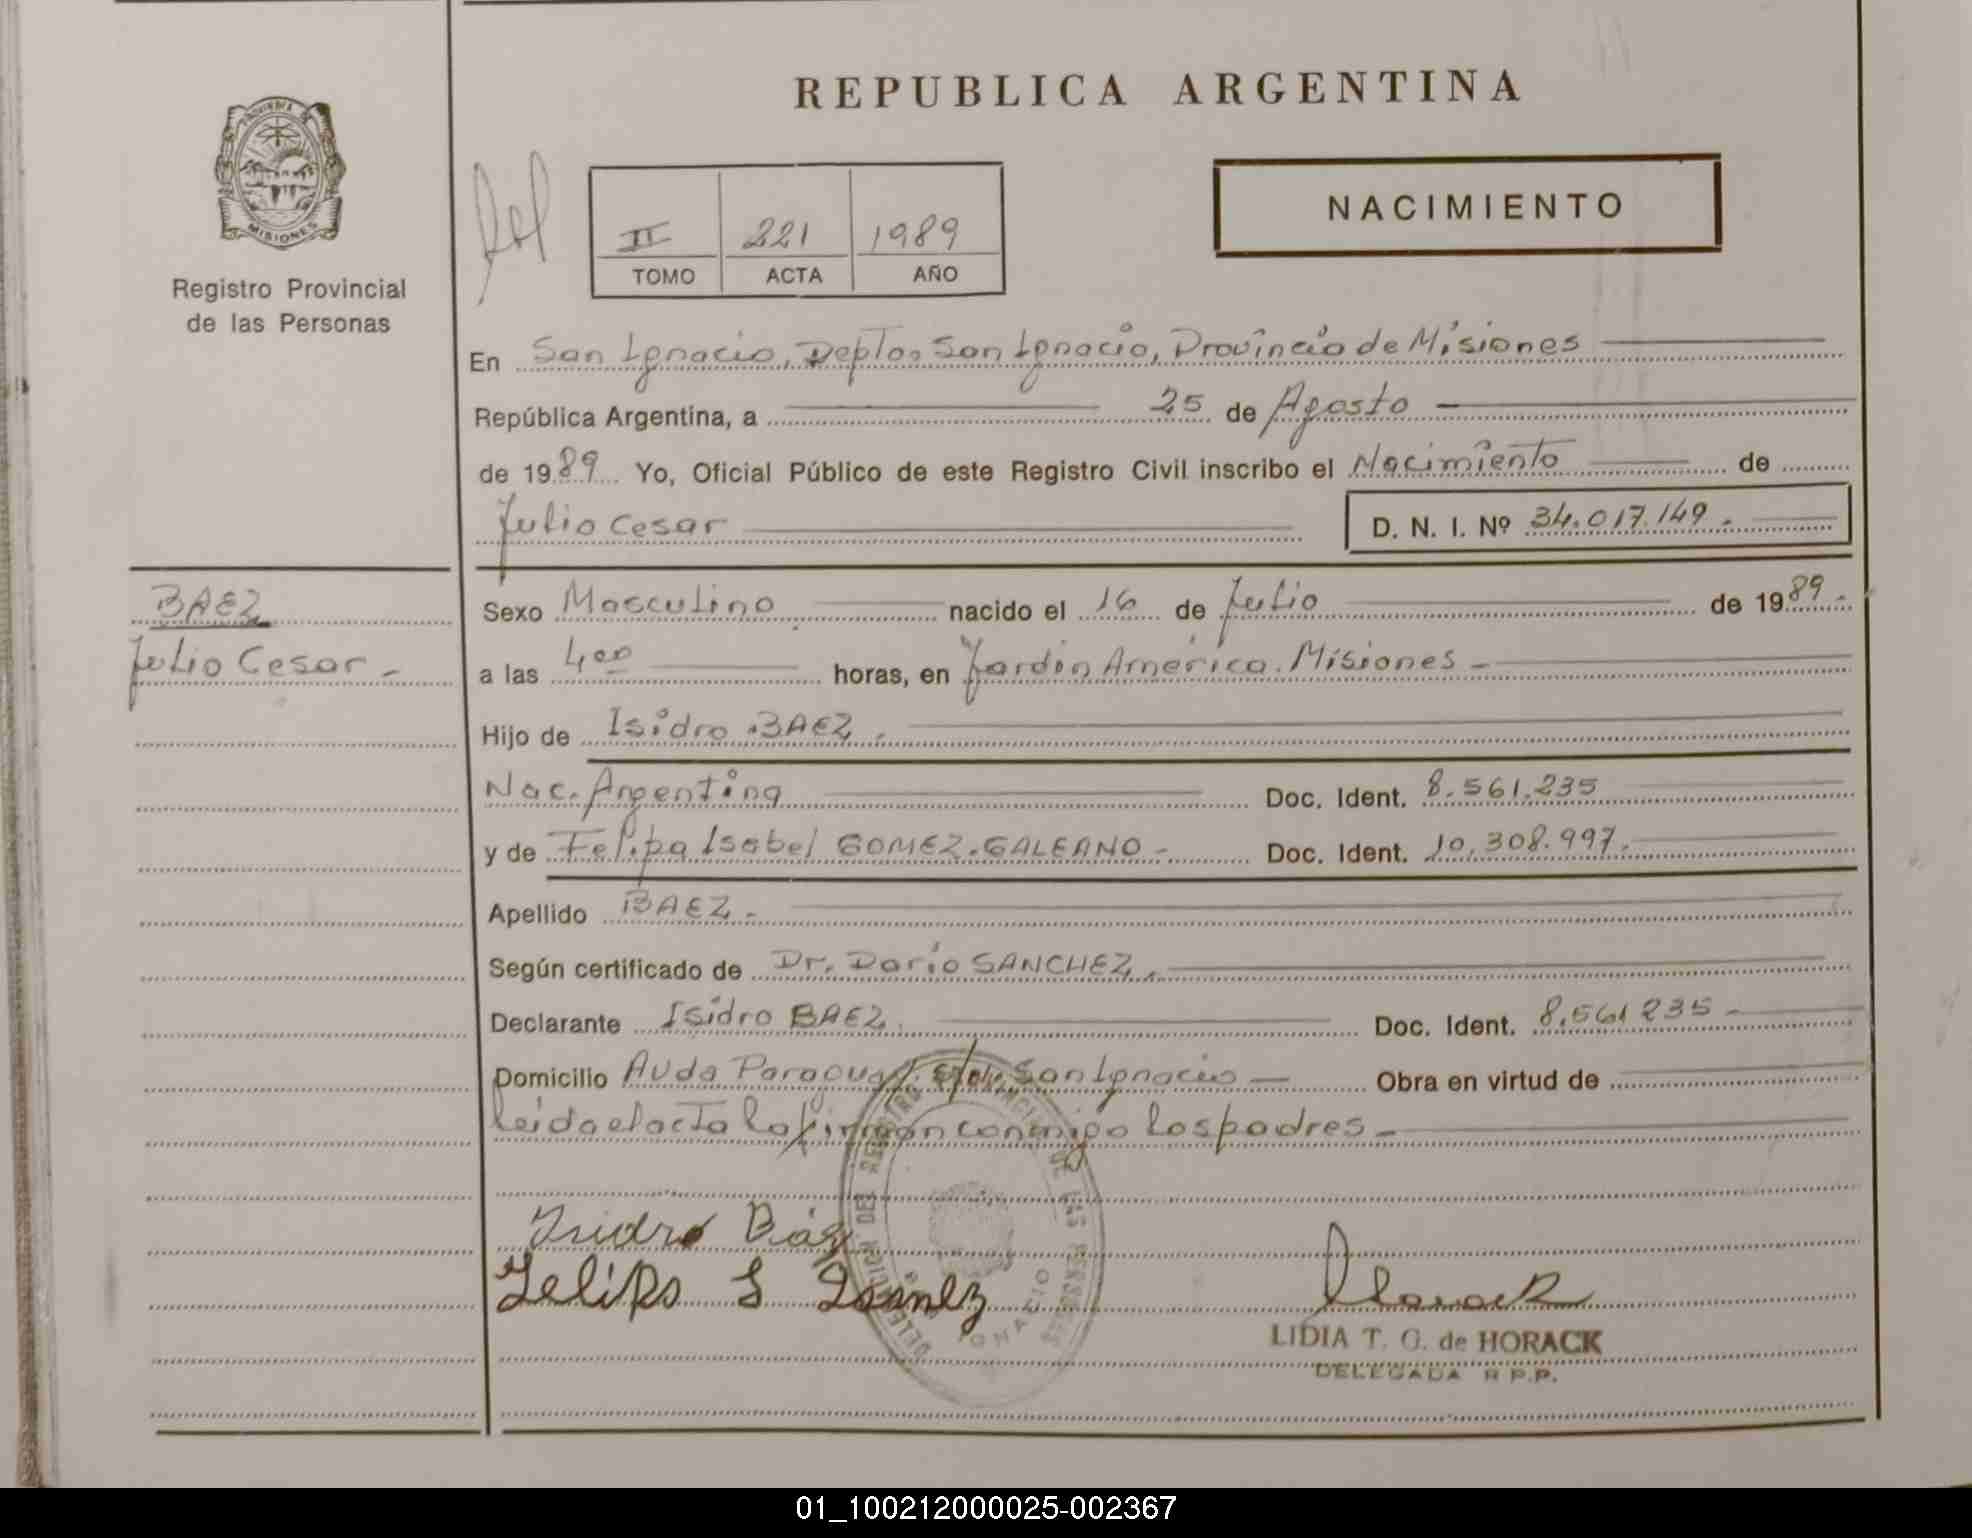 REPUBLICA ARGENTINA
PROVINCIA DE
MISIONES
Registro Provincial
de las Personas
II 221 1989
TOMO ACTA AÑO
NACIMIENTO
En San Ignacio, Depto. San Ignacio, Provincia de Misiones
República Argentina, a 25 de Agosto
de 1989 Yo, Oficial Público de este Registro Civil inscribo el Nacimiento de
Julio Cesar
D. N. I. Nº 34.017.149.
BAEZ
Julio Cesar -
Sexo Masculino nacido el 16 de Julio de 1989.-
a las 4oo horas, en Jardín América. Misiones -
Hijo de Isidro BAEZ.
Nac. Argentina Doc. Ident. 8.561.235
y de Felipa Isabel GOMEZ.GALEANO - Doc. Ident. 10.308.997.
Apellido BAEZ.-
Según certificado de Dr. Darío SANCHEZ.
Declarante Isidro BAEZ. Doc. Ident. 8.561 235 -
Domicilio Avda Paraguay San Ignacio - Obra en virtud de
leida el acta la firman conmigo los padres -
DELEGACION DEL REGISTRO PROVINCIAL DE LAS PERSONAS
IGNACIO
Isidro Báez
LIDIA T. G. de HORACK
DELEGADA R P.P.
01_100212000025-002367